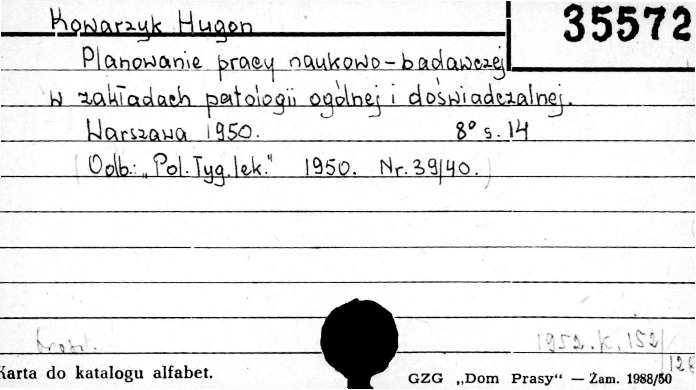 Kowarzyk Hugon
35572
Planowanie pracy naukowo-badawczej
w zakładach patologii ogólnej i doświadczalnej.
Warszawa 1950. 8° s. 14
(Odb.: „Pol. Tyg. lek." 1950. Nr. 39/40.)
1952. K. 152/
126
Karta do katalogu alfabet.
GZG „Dom Prasy" — Zam. 1988/50